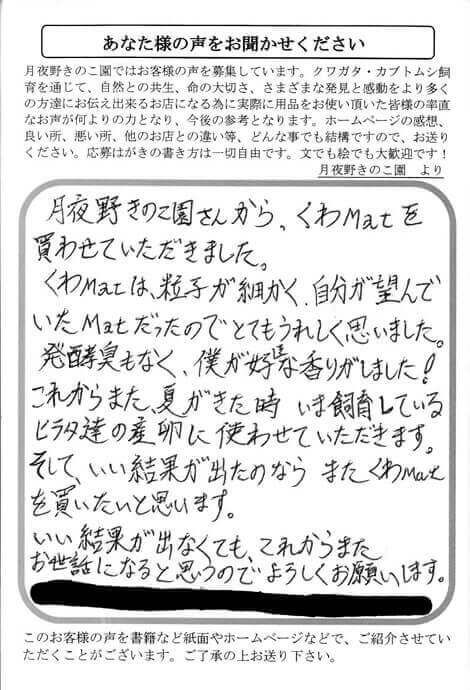 あなた様の声をお聞かせください
月夜野きのこ園ではお客様の声を募集しています。クワガタ・カブトムシ飼
育を通じて、自然との共生、命の大切さ、さまざまな発見と感動をより多く
の方達にお伝え出来るお店になる為に実際に用品をお使い頂いた皆様の率直
なお声が何よりの力となり、今後の参考となります。ホームページの感想、
良い所、悪い所、他のお店との違い等、どんな事でも結構ですので、お送り
ください。応募はがきの書き方は一切自由です。文でも絵でも大歓迎です！
月夜野きのこ園　より
月夜野きのこ園さんから、くわMatを
買わせていただきました。
くわMatは、粒子が細かく、自分が望んで
いたMatだったのでとてもうれしく思いました。
発酵臭もなく、僕が好きな香りがしました！
これからまた、夏がきた時 いま飼育している
ヒラタ達の産卵に使わせていただきます。
そして、いい結果が出たのなら またくわMat
を買いたいと思います。
いい結果が出なくても、これからまた
お世話になると思うのでよろしくお願いします。
このお客様の声を書籍など紙面やホームページなどで、ご紹介させてい
ただくことがございます。ご了承の上お送り下さい。